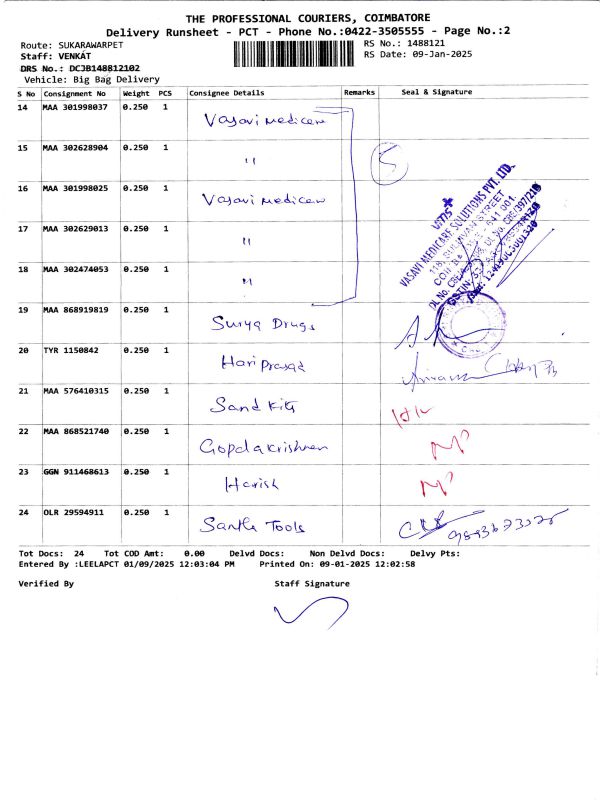 THE PROFESSIONAL COURIERS, COIMBATORE
Delivery Runsheet - PCT - Phone No.:0422-3505555 - Page No.:2
Route: SUKARAWARPET
RS No.: 1488121
Staff: VENKAT
RS Date: 09-Jan-2025
DRS No.: DCJB148812102
Vehicle: Big Bag Delivery
S No Consignment No Weight PCS Consignee Details Remarks Seal & Signature
14 MAA 301998037 0.250 1 Vasavi Medicare
15 MAA 302628904 0.250 1 "
5
16 MAA 301998025 0.250 1 Vasavi Medicare
17 MAA 302629013 0.250 1 "
18 MAA 302474053 0.250 1 "
VASAVI MEDICARE SOLUTIONS PVT. LTD.
19 MAA 868919819 0.250 1 Surya Drugs
20 TYR 1150842 0.250 1 Hari prasad
21 MAA 576410315 0.250 1 Sand Kits
22 MAA 868521740 0.250 1 Gopalakrishnan
23 GGN 911468613 0.250 1 Harish
24 OLR 29594911 0.250 1 Santh Tools
Tot Docs: 24 Tot COD Amt: 0.00 Delvd Docs: Non Delvd Docs: Delvy Pts:
Entered By :LEELAPCT 01/09/2025 12:03:04 PM Printed On: 09-01-2025 12:02:58
Verified By Staff Signature